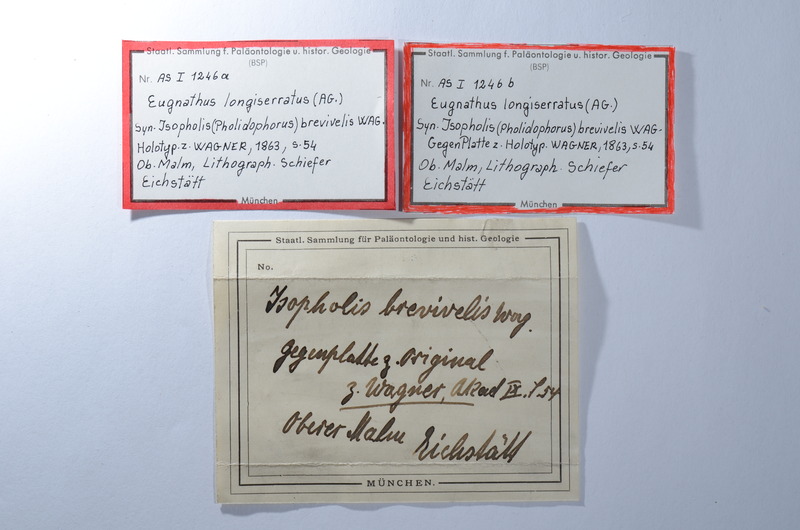 Staatl. Sammlung f. Paläontologie u. histor. Geologie
(BSP)
Nr. AS I 1246 a
Eugnathus longiserratus (AG.)
Syn. Isopholis (Pholidophorus) brevivelis WAG.
Holotyp. z. WAGNER, 1863, S. 54
Ob. Malm, Lithograph. Schiefer
Eichstätt
München
Staatl. Sammlung f. Paläontologie u. histor. Geologie
(BSP)
Nr. AS I 1246 b
Eugnathus longiserratus (AG.)
Syn. Isopholis (Pholidophorus) brevivelis WAG-
GegenPlatte z. Holotyp. WAGNER, 1863, S. 54
Ob. Malm, Lithograph. Schiefer
Eichstätt
München
Staatl. Sammlung für Paläontologie und hist. Geologie
No.
Isopholis brevivelis Wag.
Gegenplatte z. Original
z. Wagner, Akad IX. S. 54
Oberer Malm
Eichstätt
MÜNCHEN.